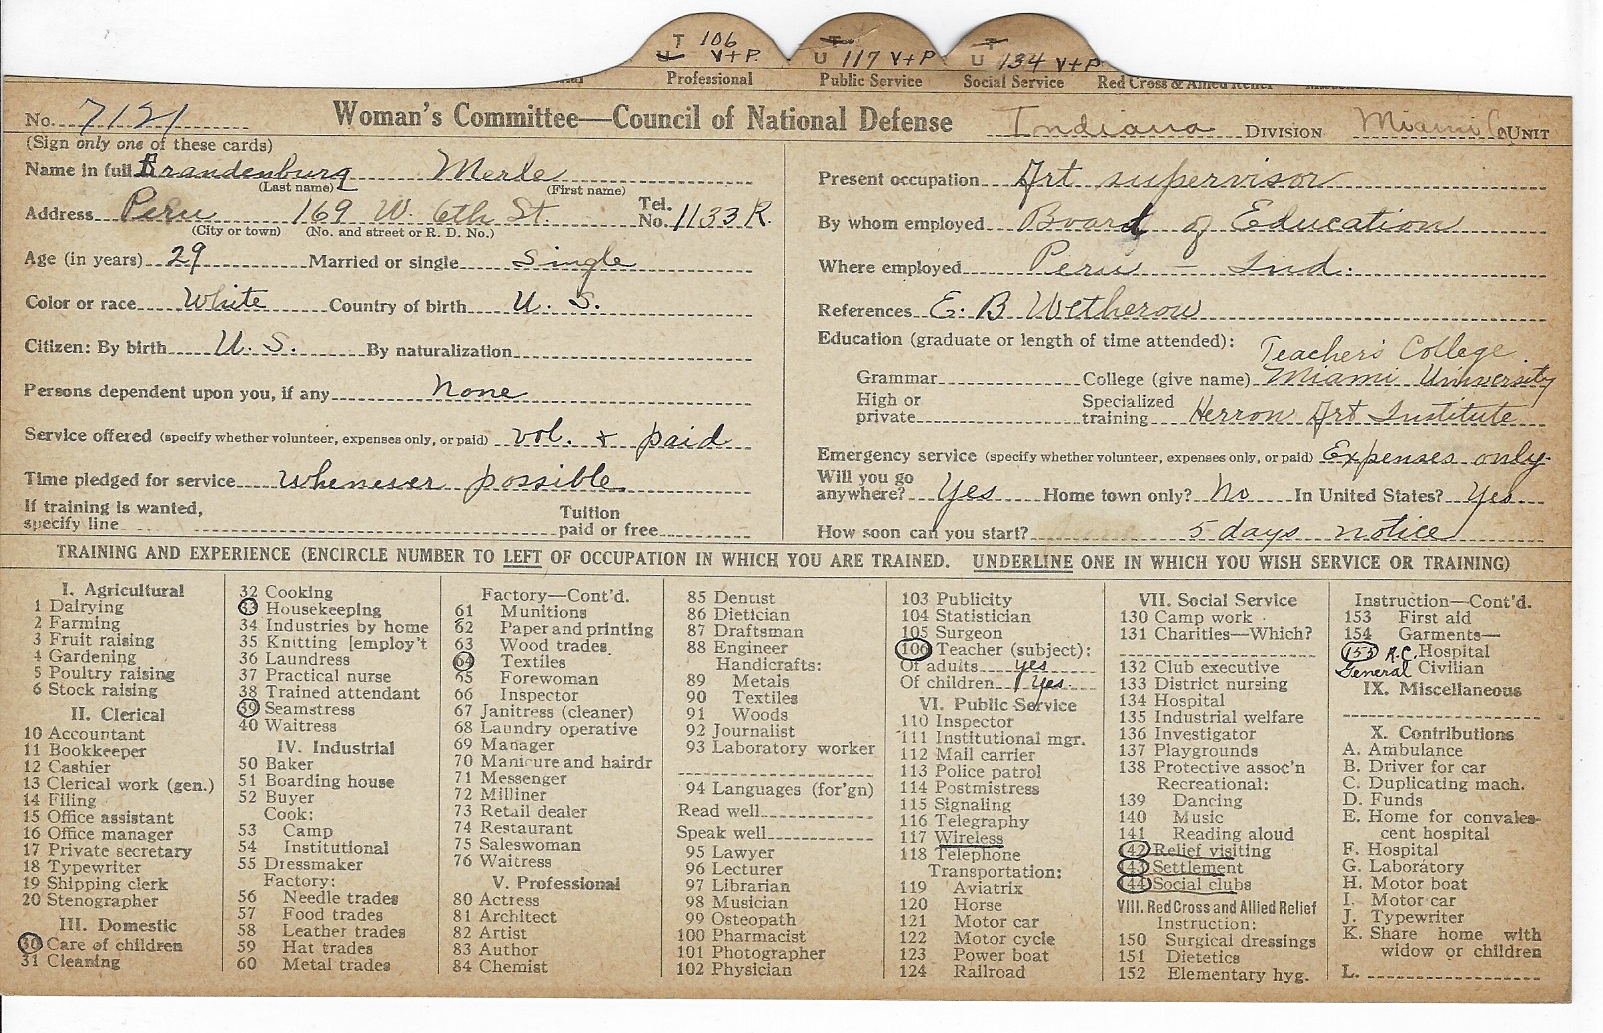 T 106 T T
U V+P. U 117 V+P U 134 V+P
Professional Public Service Social Service Red Cross & Allied Relief
No. 7121 Woman's Committee—Council of National Defense Indiana DIVISION Miami Co UNIT
(Sign only one of these cards)
Name in full Brandenburg Merle
(Last name) (First name)
Address Peru 169 W. 6th St. Tel. No. 1133 R.
(City or town) (No. and street or R. D. No.)
Age (in years) 29 Married or single Single
Color or race White Country of birth U. S.
Citizen: By birth U. S. By naturalization
Persons dependent upon you, if any None
Service offered (specify whether volunteer, expenses only, or paid) vol. + paid
Time pledged for service whenever possible
If training is wanted, specify line Tuition paid or free
Present occupation Art supervisor
By whom employed Board of Education
Where employed Peru - Ind.
References E. B Wetherow
Education (graduate or length of time attended):
Teachers College.
Grammar College (give name) Miami University
High or private Specialized training Herron Art Institute
Emergency service (specify whether volunteer, expenses only, or paid) Expenses only.
Will you go anywhere? Yes Home town only? No In United States? Yes
How soon can you start? 5 days notice
TRAINING AND EXPERIENCE (ENCIRCLE NUMBER TO LEFT OF OCCUPATION IN WHICH YOU ARE TRAINED. UNDERLINE ONE IN WHICH YOU WISH SERVICE OR TRAINING)
I. Agricultural
1 Dairying
2 Farming
3 Fruit raising
4 Gardening
5 Poultry raising
6 Stock raising
II. Clerical
10 Accountant
11 Bookkeeper
12 Cashier
13 Clerical work (gen.)
14 Filing
15 Office assistant
16 Office manager
17 Private secretary
18 Typewriter
19 Shipping clerk
20 Stenographer
III. Domestic
30 Care of children
31 Cleaning
32 Cooking
33 Housekeeping
34 Industries by home
35 Knitting [employ't
36 Laundress
37 Practical nurse
38 Trained attendant
39 Seamstress
40 Waitress
IV. Industrial
50 Baker
51 Boarding house
52 Buyer
Cook:
53 Camp
54 Institutional
55 Dressmaker
Factory:
56 Needle trades
57 Food trades
58 Leather trades
59 Hat trades
60 Metal trades
Factory—Cont'd.
61 Munitions
62 Paper and printing
63 Wood trades
64 Textiles
65 Forewoman
66 Inspector
67 Janitress (cleaner)
68 Laundry operative
69 Manager
70 Manicure and hairdr
71 Messenger
72 Milliner
73 Retail dealer
74 Restaurant
75 Saleswoman
76 Waitress
V. Professional
80 Actress
81 Architect
82 Artist
83 Author
84 Chemist
85 Dentist
86 Dietician
87 Draftsman
88 Engineer
Handicrafts:
89 Metals
90 Textiles
91 Woods
92 Journalist
93 Laboratory worker
94 Languages (for'gn)
Read well
Speak well
95 Lawyer
96 Lecturer
97 Librarian
98 Musician
99 Osteopath
100 Pharmacist
101 Photographer
102 Physician
103 Publicity
104 Statistician
105 Surgeon
106 Teacher (subject):
Of adults yes
Of children Yes.
VI. Public Service
110 Inspector
111 Institutional mgr.
112 Mail carrier
113 Police patrol
114 Postmistress
115 Signaling
116 Telegraphy
117 Wireless
118 Telephone
Transportation:
119 Aviatrix
120 Horse
121 Motor car
122 Motor cycle
123 Power boat
124 Railroad
VII. Social Service
130 Camp work
131 Charities—Which?
132 Club executive
133 District nursing
134 Hospital
135 Industrial welfare
136 Investigator
137 Playgrounds
138 Protective assoc'n
Recreational:
139 Dancing
140 Music
141 Reading aloud
142 Relief visiting
143 Settlement
144 Social clubs
VIII. Red Cross and Allied Relief
Instruction:
150 Surgical dressings
151 Dietetics
152 Elementary hyg.
Instruction—Cont'd.
153 First aid
154 Garments—
155 R.C. Hospital
General Civilian
IX. Miscellaneous
X. Contributions
A. Ambulance
B. Driver for car
C. Duplicating mach.
D. Funds
E. Home for convales-
cent hospital
F. Hospital
G. Laboratory
H. Motor boat
I. Motor car
J. Typewriter
K. Share home with
widow or children
L.